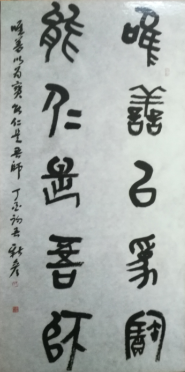 唯善以為寶
能仁是吾師
唯善以為寶能仁是吾師 丁酉初冬